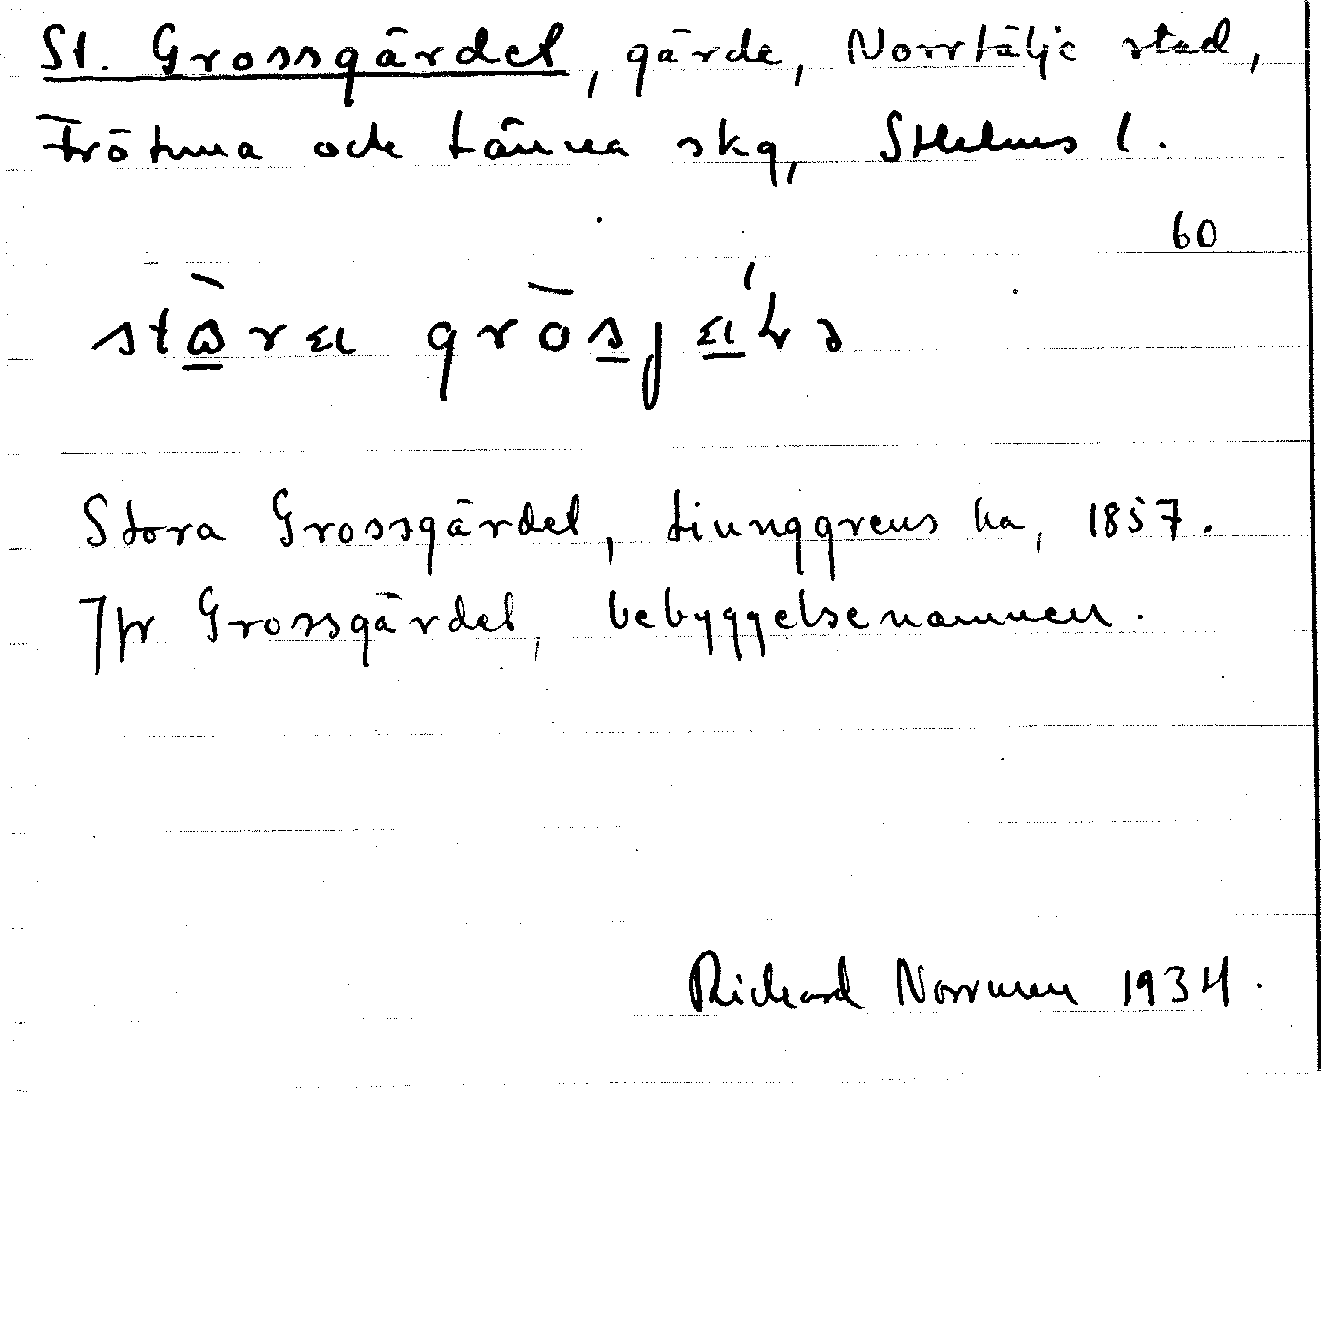 St. Grossgärdet, gärde, Norrtälje stad,
Frötuna och Länna skg, Sthlms l.
60
Stora Grossgärdet, Ljunggrens ka, 1857.
Jfr Grossgärdet, bebyggelsenamnen.
Richard Norrman 1934.